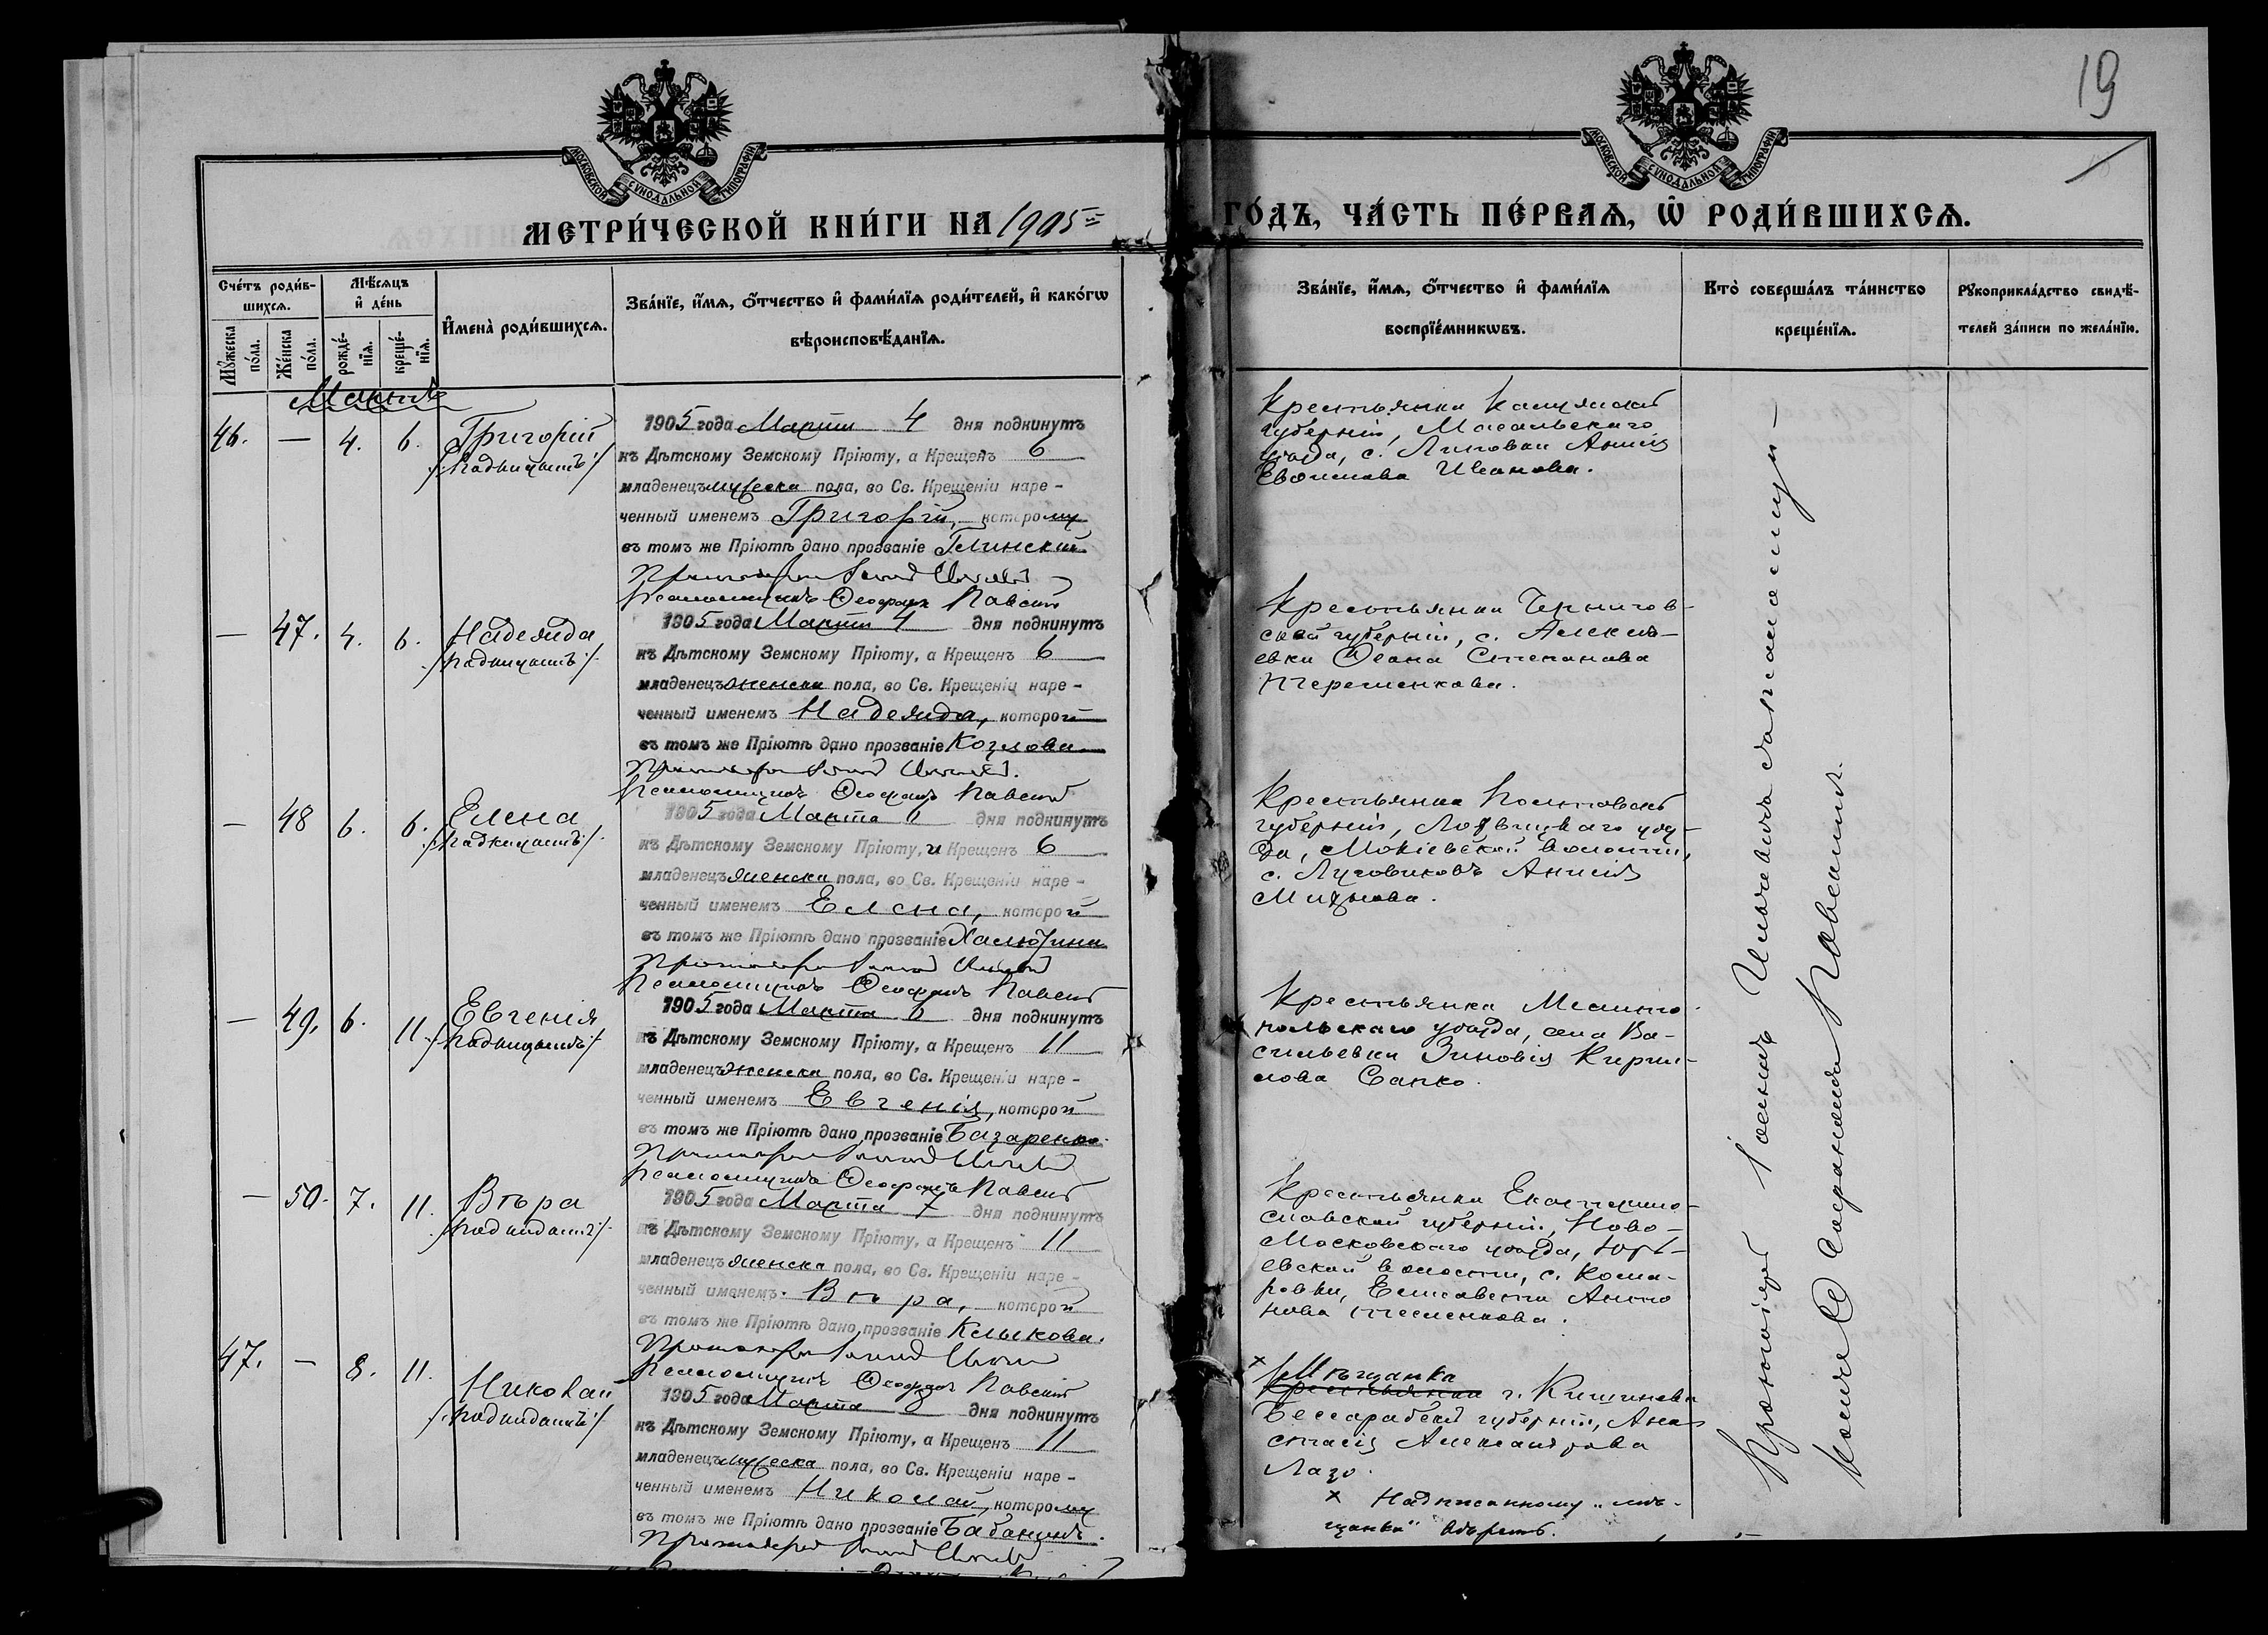 19
МОСКОВСКОЙ СѴНОДАЛЬНОЙ ТИПОГРАФІИ
МОСКОВСКОЙ СѴНОДАЛЬНОЙ ТИПОГРАФІИ
МЕТРИ́ЧЕСКОЙ КНИ́ГИ НА 1905 ГО́ДЪ, ЧА́СТЬ ПЕ́РВАѦ, Ѽ РОДИ́ВШИХСѦ.
Сче́тъ роди́в-
шихсѧ.
Мꙋ́жеска по́ла.
Же́нска по́ла.
Мѣ́сѧцъ и҆ де́нь
рожде́-нїѧ.
креще́-нїѧ.
И҆мена̀ роди́вшихсѧ.
Зва́нїе, и҆́мѧ, ѻ҆́тчество и҆ фами́лїѧ роди́телей, и҆ како́гѡ
вѣроисповѣ́данїѧ.
Зва́нїе, и҆́мѧ, ѻ҆́тчество и҆ фами́лїѧ
воспрїе́мникѡвъ.
Кто̀ соверша́лъ та́инство
креще́нїѧ.
Рꙋкоприкла́дство свидѣ́-
телей за́писи по жела́нїю.
Мартъ
46. — 4. 6. Григорій
/:подкидышъ:/
1905 года Марта 4 дня подкинутъ
къ Дѣтскому Земскому Пріюту, а Крещенъ 6
младенецъ мужеска пола, во Св. Крещеніи наре-
ченный именемъ Григорій, которому
въ томъ же Пріютѣ дано прозваніе Глинскій
Псаломщикъ Ѳеофанъ Павскій
Крестьянка Калужской
губерніи, Масальскаго
уѣзда, с. Анисія
Иванова.
— 47. 4. 6. Надежда
/:подкидышъ:/
1905 года Марта 4 дня подкинутъ
къ Дѣтскому Земскому Пріюту, а Крещен 6
младенецъ женска пола, во Св. Крещеніи наре-
ченный именемъ Надежда, которой
въ томъ же Пріютѣ дано прозваніе Козлова
Псаломщикъ Ѳеофанъ Павскій
Крестьянка Чернигов-
ской губерніи, с. Алексѣ-
евки Степанова
— 48 6. 6. Елена
/:подкидышъ:/
1905 года Марта 6 дня подкинутъ
къ Дѣтскому Земскому Пріюту, и Крещен 6
младенецъ женска пола, во Св. Крещеніи наре-
ченный именемъ Елена, которой
въ томъ же Пріютѣ дано прозваніе
Псаломщикъ Ѳеофанъ Павскій
Крестьянка Полтавской
губерніи, Лохвицкаго уѣз-
да, волости,
с. Луговиковъ Анисія
— 49. 6. 11. Евгенія
/:подкидышъ:/
1905 года Марта 6 дня подкинутъ
къ Дѣтскому Земскому Пріюту, а Крещен 11
младенецъ женска пола, во Св. Крещеніи наре-
ченный именемъ Евгенія, которой
въ томъ же Пріютѣ дано прозваніе Базаренко
Псаломщикъ Ѳеофанъ Павскій
Крестьянка Мелито-
польскаго уѣзда, села Ва-
сильевки Зиновія Кирил-
лова Санко.
— 50. 7. 11. Вѣра
/:подкидышъ:/
1905 года Марта 7 дня подкинутъ
къ Дѣтскому Земскому Пріюту, а Крещенъ 11
младенецъ женска пола, во Св. Крещеніи наре-
ченный именемъ Вѣра, которой
въ томъ же Пріютѣ дано прозваніе Клыкова.
Псаломщикъ Ѳеофанъ Павскій
Крестьянка Екатерино-
славской губерніи, Ново-
Московскаго уѣзда, Юрь-
евской волости, с. Кома-
ровки, Елисавета Анто
нова
47. — 8. 11. Николай
/:подкидышъ:/
1905 года Марта 8 дня подкинутъ
къ Дѣтскому Земскому Пріюту, а Крещен 11
младенецъ мужеска пола, во Св. Крещеніи наре-
ченный именемъ Николай, которому
въ томъ же Пріютѣ дано прозваніе Бабанинъ.
× Мѣщанка
Крестьянка г. Кишинева
Бессарабской губерніи, Ана-
стасія Александрова
Лазо.
× Надписанному „мѣ-
щанка" вѣрить.
Протоіерей Іоаннъ
Павскимъ.